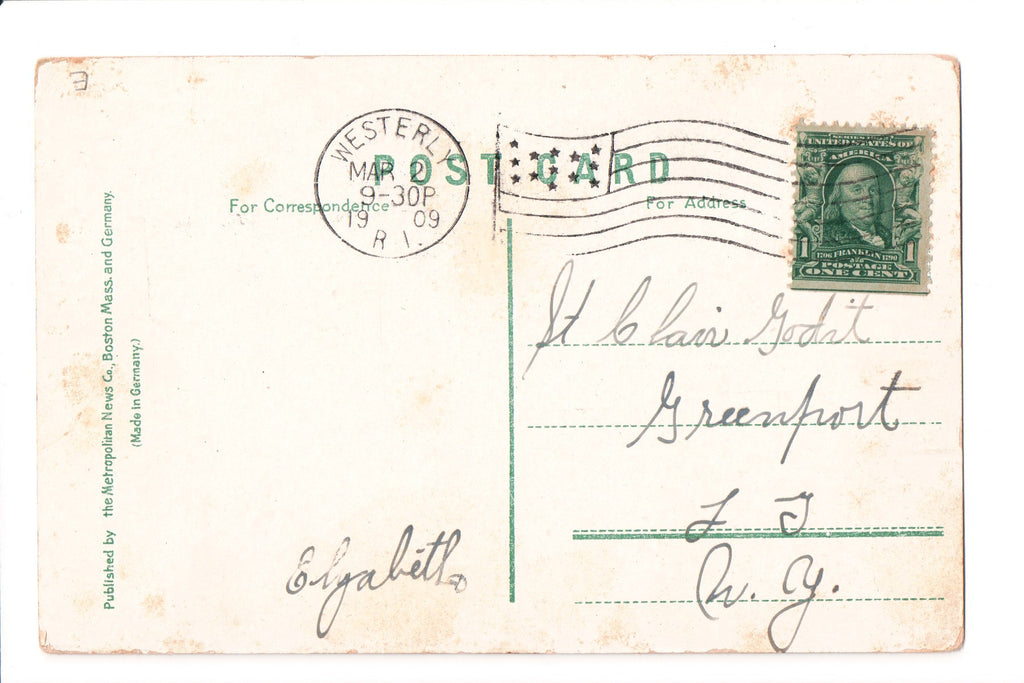 WESTERLY
MAR 2
9-30P
19 09
R I.
POST CARD
For Correspondence
For Address
SERIES 1902
UNITED STATES OF
AMERICA
1 1
1706 FRANKLIN 1790
POSTAGE
ONE CENT
St Clair Godit
Greenport
L I
N. Y.
Elzabeth
Published by the Metropolitan News Co., Boston Mass. and Germany.
(Made in Germany.)